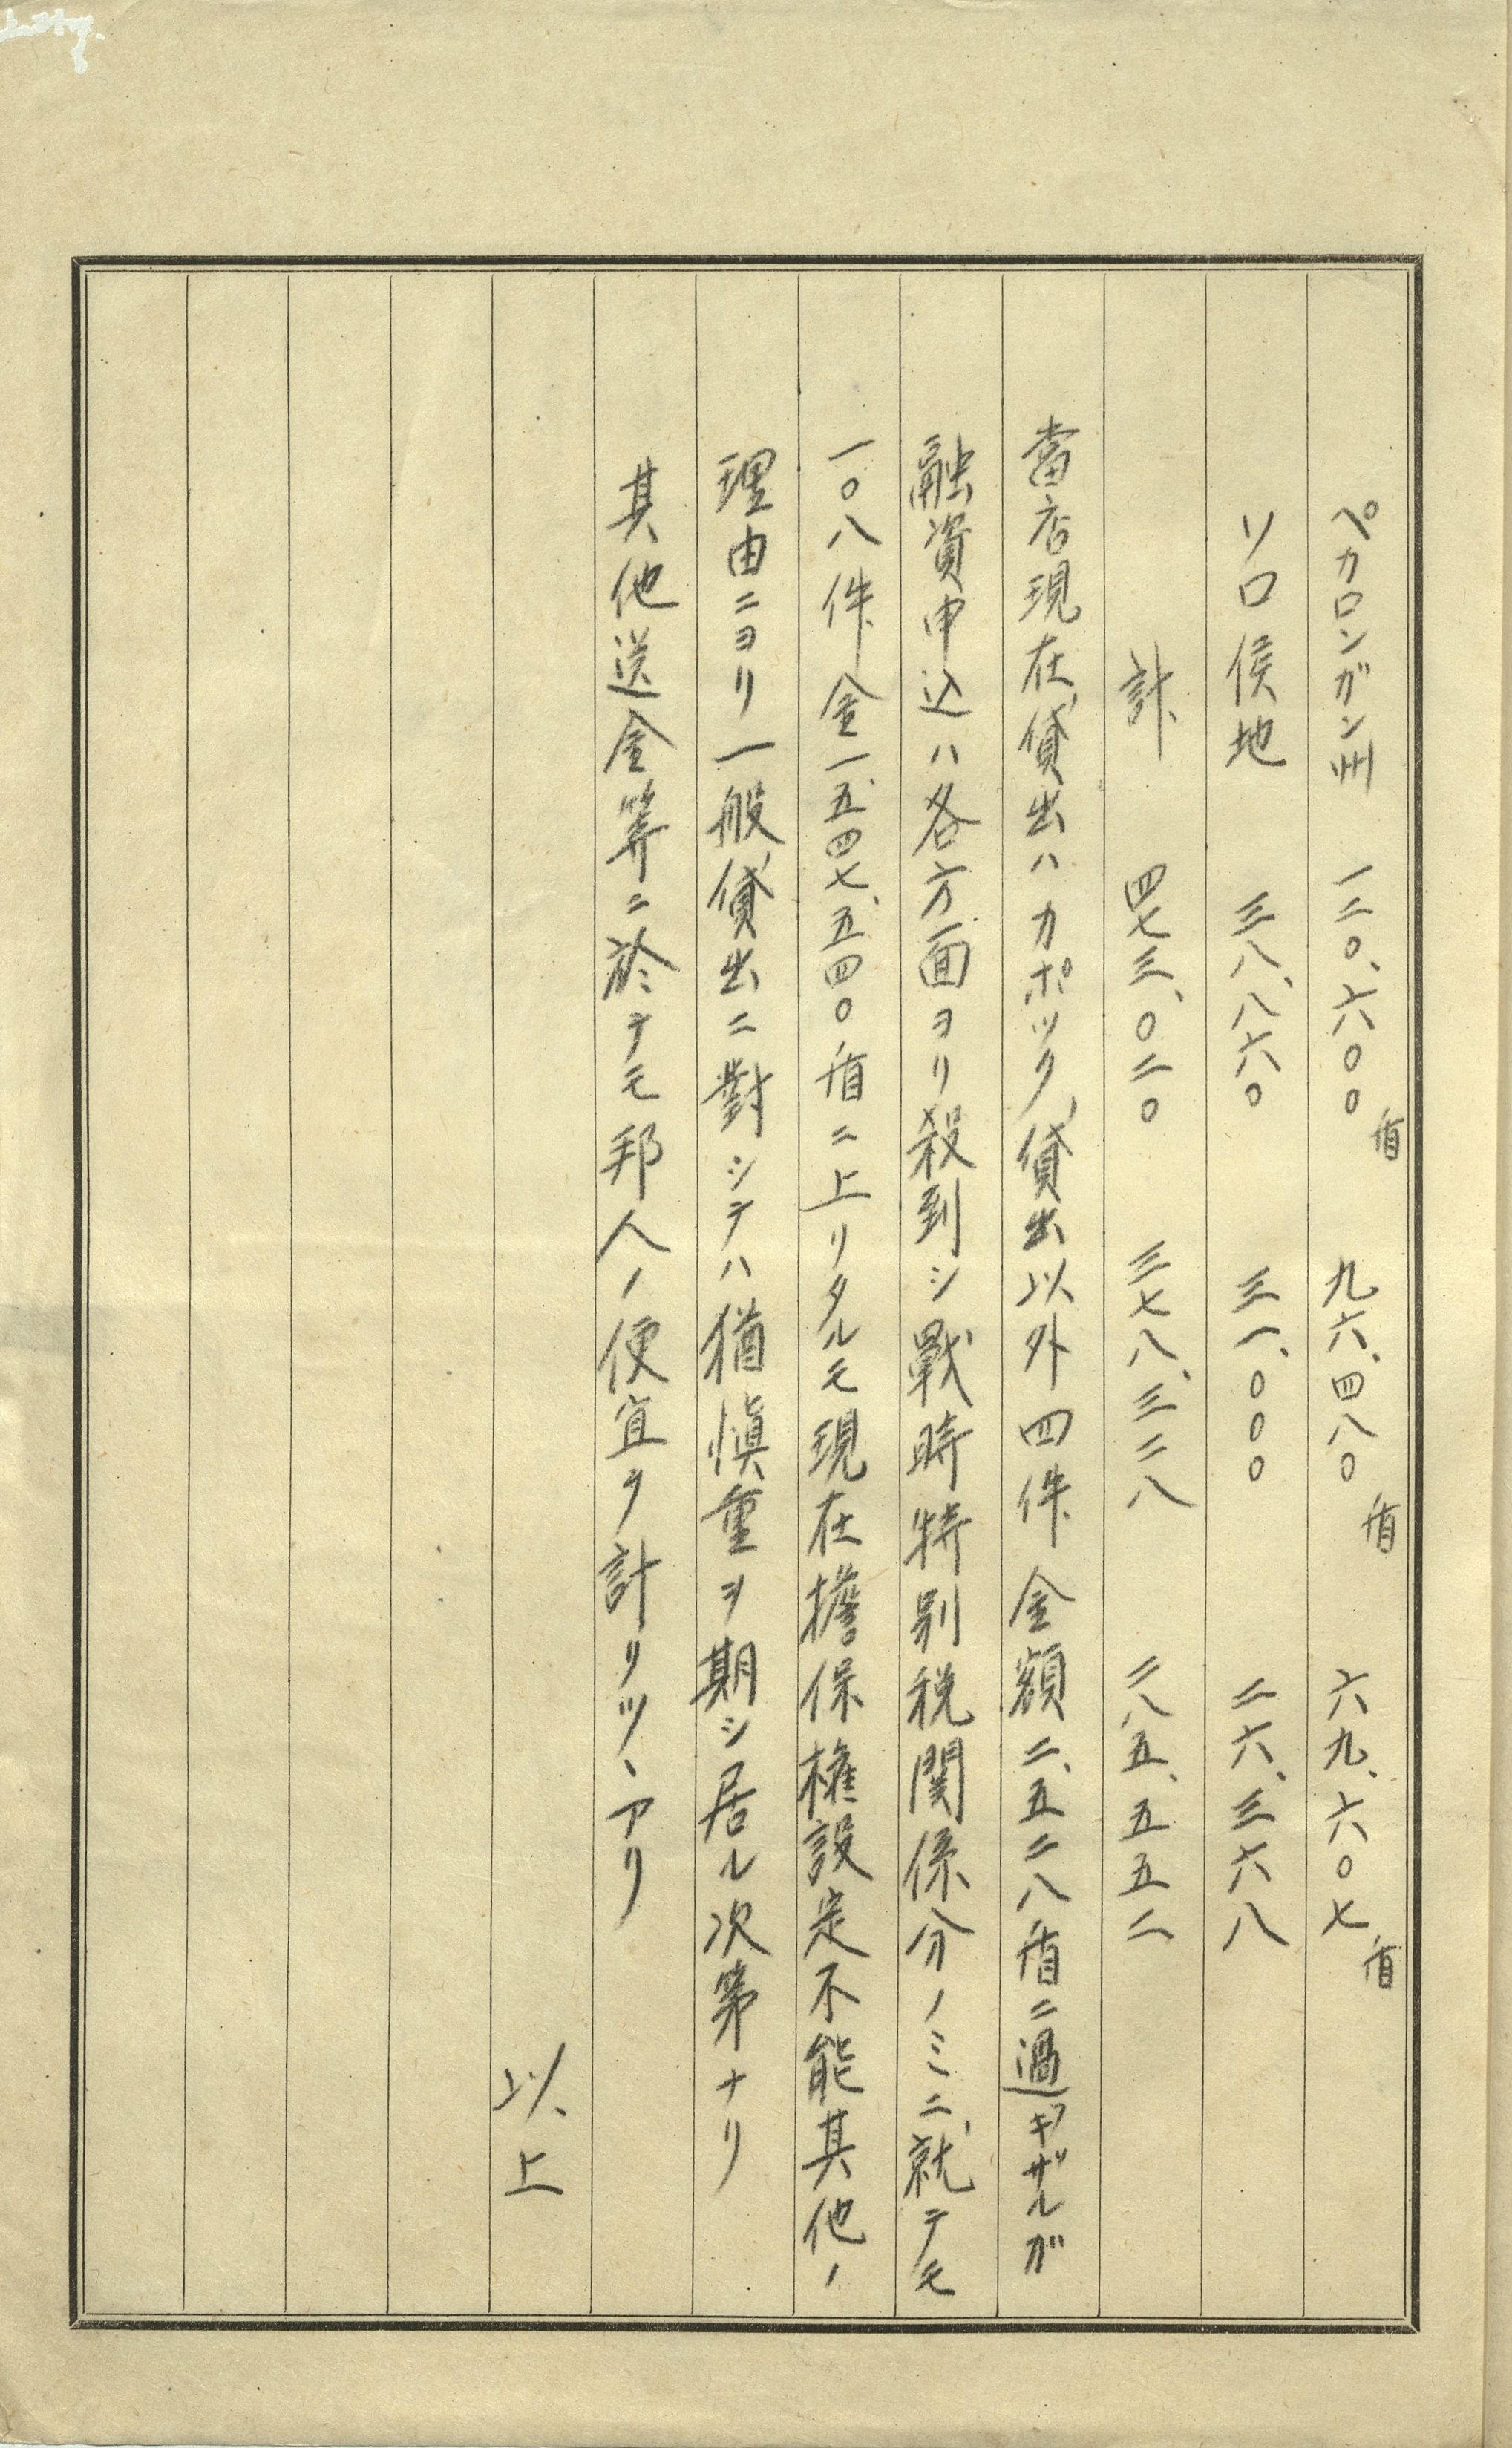 ペカロンガン州 一二〇、六〇〇盾 九六、四八〇盾 六九、六〇七盾
ソロ侯地 三八、八六〇 三一、〇〇〇 二六、三六八
計 四七三、〇二〇 三七八、三二八 二八五、五五二
當店現在貸出ハカポック貸出以外四件金額二、五二八盾ニ過ギザルガ
融資申込ハ各方面ヨリ殺到シ戰時特別税関係分ノミニ就テモ
一〇八件金一、五四七、五四〇盾ニ上リタルモ現在擔保權設定不能其他ノ
理由ニヨリ一般貸出ニ對シテハ猶愼重ヲ期シ居ル次第ナリ
其他送金等ニ於テモ邦人ノ便宜ヲ計リツヽアリ
以上